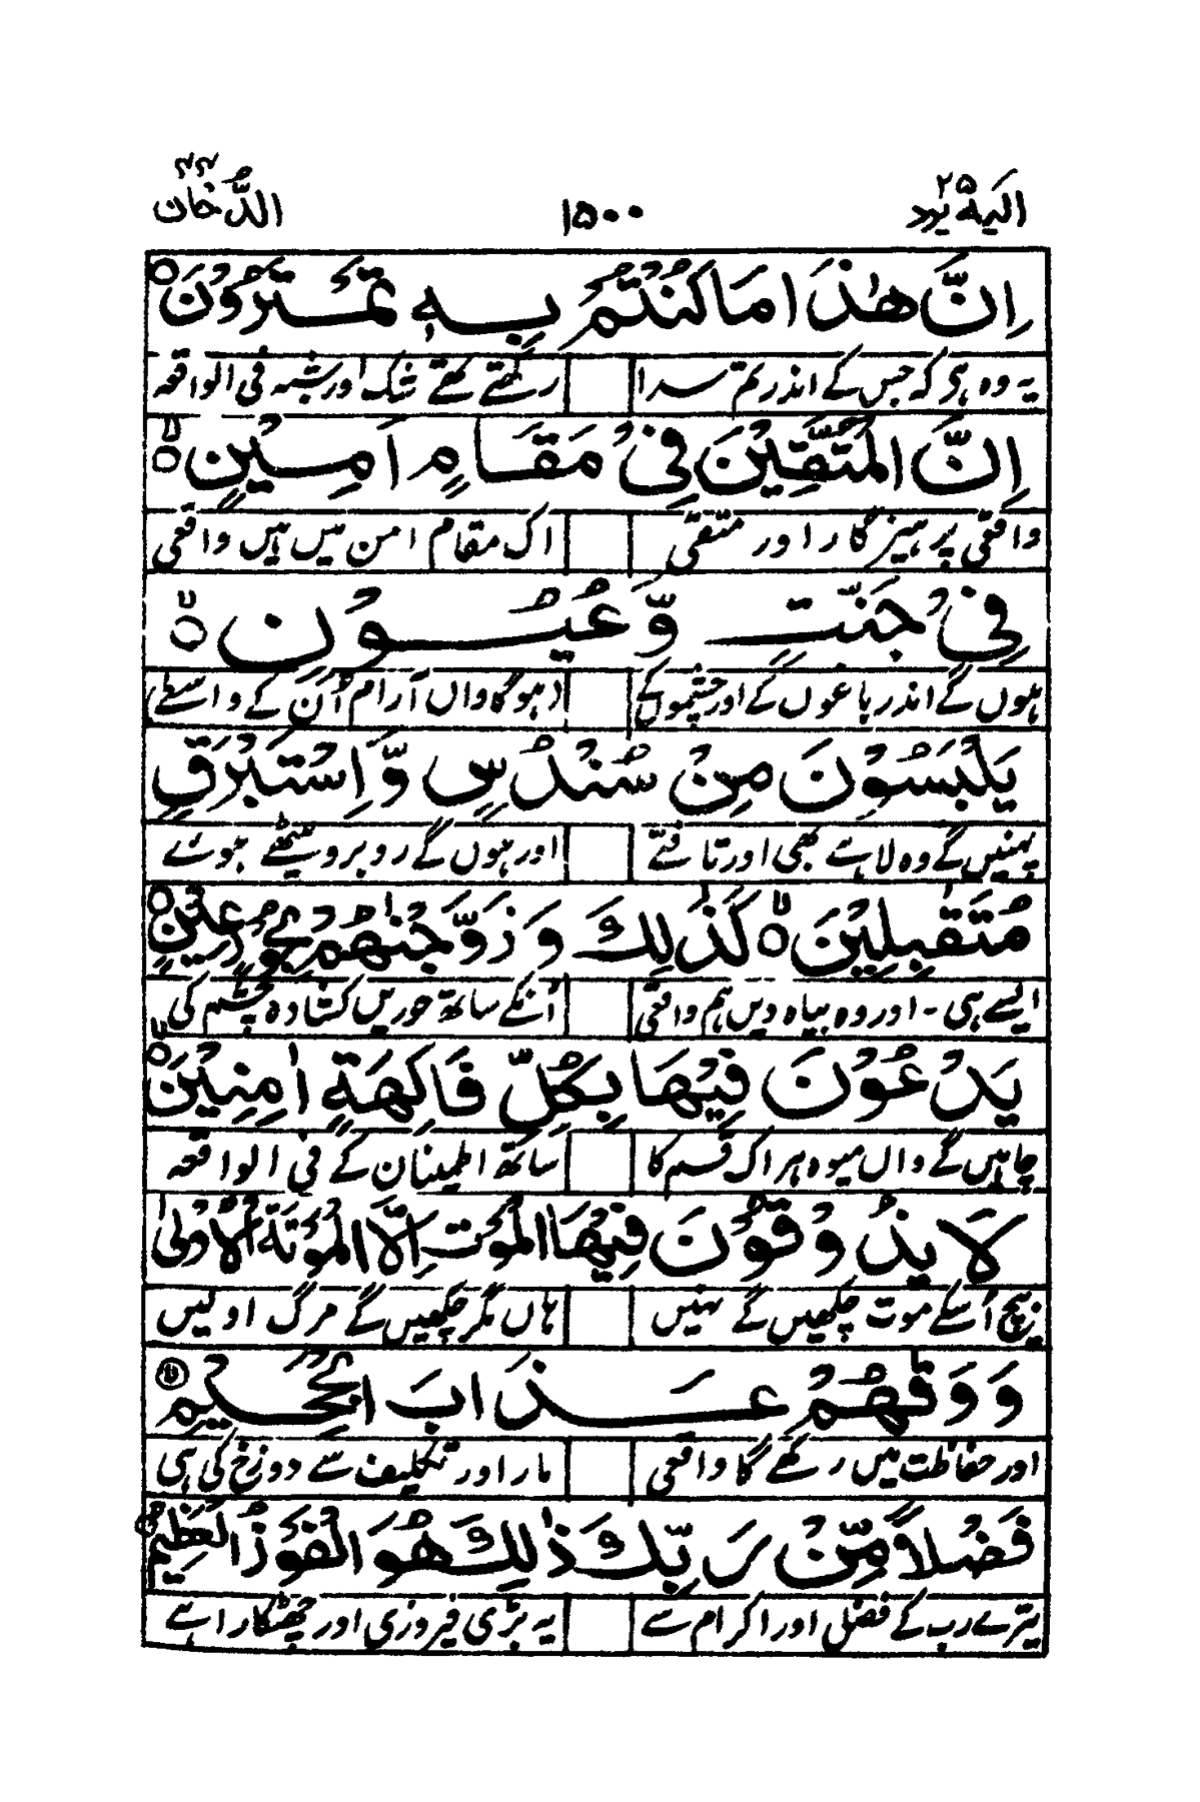 الیه یرد ۲۵ ۱۵۰۰ الدُّخان ۴۴
اِنَّ هٰذَا مَا كُنْتُمْ بِهٖ تَمْتَرُوْنَ ○
یہ وہ ہی کہ جس کے اندر تم سدا رکھتے تھے شک اور شبہ فی الواقعہ
اِنَّ الْمُتَّقِيْنَ فِىْ مَقَامٍ اَمِيْنٍ ○ۙ
واقعی پرہیزگار اور متقی اک مقام امن میں ہیں واقعی
فِىْ جَنّٰتٍ وَّعُيُوْنٍ ○ۙ
ہوں گے اندر باغوں کے اور چشموں کے ہوگا واں آرام اُن کے واسطے
يَلْبَسُوْنَ مِنْ سُنْدُسٍ وَّاِسْتَبْرَقٍ
پہنیں گے وہ لاہے بھی اور تافتے اور ہوں گے روبرو بیٹھے ہوئے
مُتَقٰبِلِيْنَ ○ۙ كَذٰلِكَ وَزَوَّجْنٰهُمْ بِحُوْرٍ عِيْنٍ ○
ایسے ہی - اور وہ بیاہ دیں ہم واقعی اُنکے ساتھ حوریں کشادہ چشم کی
يَدْعُوْنَ فِيْهَا بِكُلِّ فَاكِهَةٍ اٰمِنِيْنَ ○ۙ
چاہیں گے واں میوہ ہر اک قسم کا ساتھ اطمینان کے فی الواقعہ
لَا يَذُوْقُوْنَ فِيْهَا الْمَوْتَ اِلَّا الْمَوْتَةَ الْاُوْلٰى
بیچ اُسکے موت چکھیں گے نہیں ہاں مگر چکھیں گے مرگ اولیں
وَ وَقٰهُمْ عَذَابَ الْجَحِيْمِ ○ۙ
اور حفاظت میں رکھے گا واقعی مار اور تکلیف سے دوزخ کی ہی
فَضْلًا مِّنْ رَّبِّكَ ذٰلِكَ هُوَ الْفَوْزُ الْعَظِيْمُ
تیرے رب کے فضل اور اکرام سے یہ بڑی فیروزی اور چھٹکارا ہے